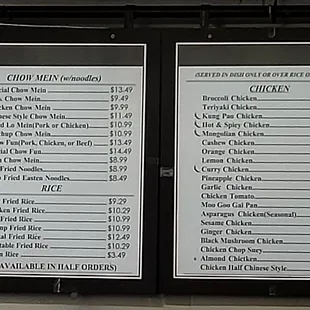 CHOW MEIN (w/noodles)
cial Chow Mein $13.49
k Chow Mein $9.49
cken Chow Mein $9.99
nese Style Chow Mein $11.49
d Lo Mein(Pork or Chicken) $10.99
chup Chow Mein $10.99
w Fun(Pork, Chicken, or Beef) $13.49
cial Chow Fun $14.49
n Chow Mein $8.99
Fried Noodles $8.99
p Fried Easten Noodles $8.49
RICE
Fried Rice $9.29
ken Fried Rice $10.29
Fried Rice $10.99
mp Fried Rice $10.99
ial Fried Rice $12.49
table Fried Rice $10.29
n Rice $3.49
AVAILABLE IN HALF ORDERS)
(SERVED IN DISH ONLY OR OVER RICE O
CHICKEN
Broccoli Chicken
Teriyaki Chicken
Kung Pao Chicken
Hot & Spicy Chicken
Mongolian Chicken
Cashew Chicken
Orange Chicken
Lemon Chicken
Curry Chicken
Pineapple Chicken
Garlic Chicken
Chicken Tomato
Moo Goo Gai Pan
Asparagus Chicken(Seasonal)
Sesame Chicken
Ginger Chicken
Black Mushroom Chicken
Chicken Chop Suey
Almond Chicken
Chicken Half Chinese Style